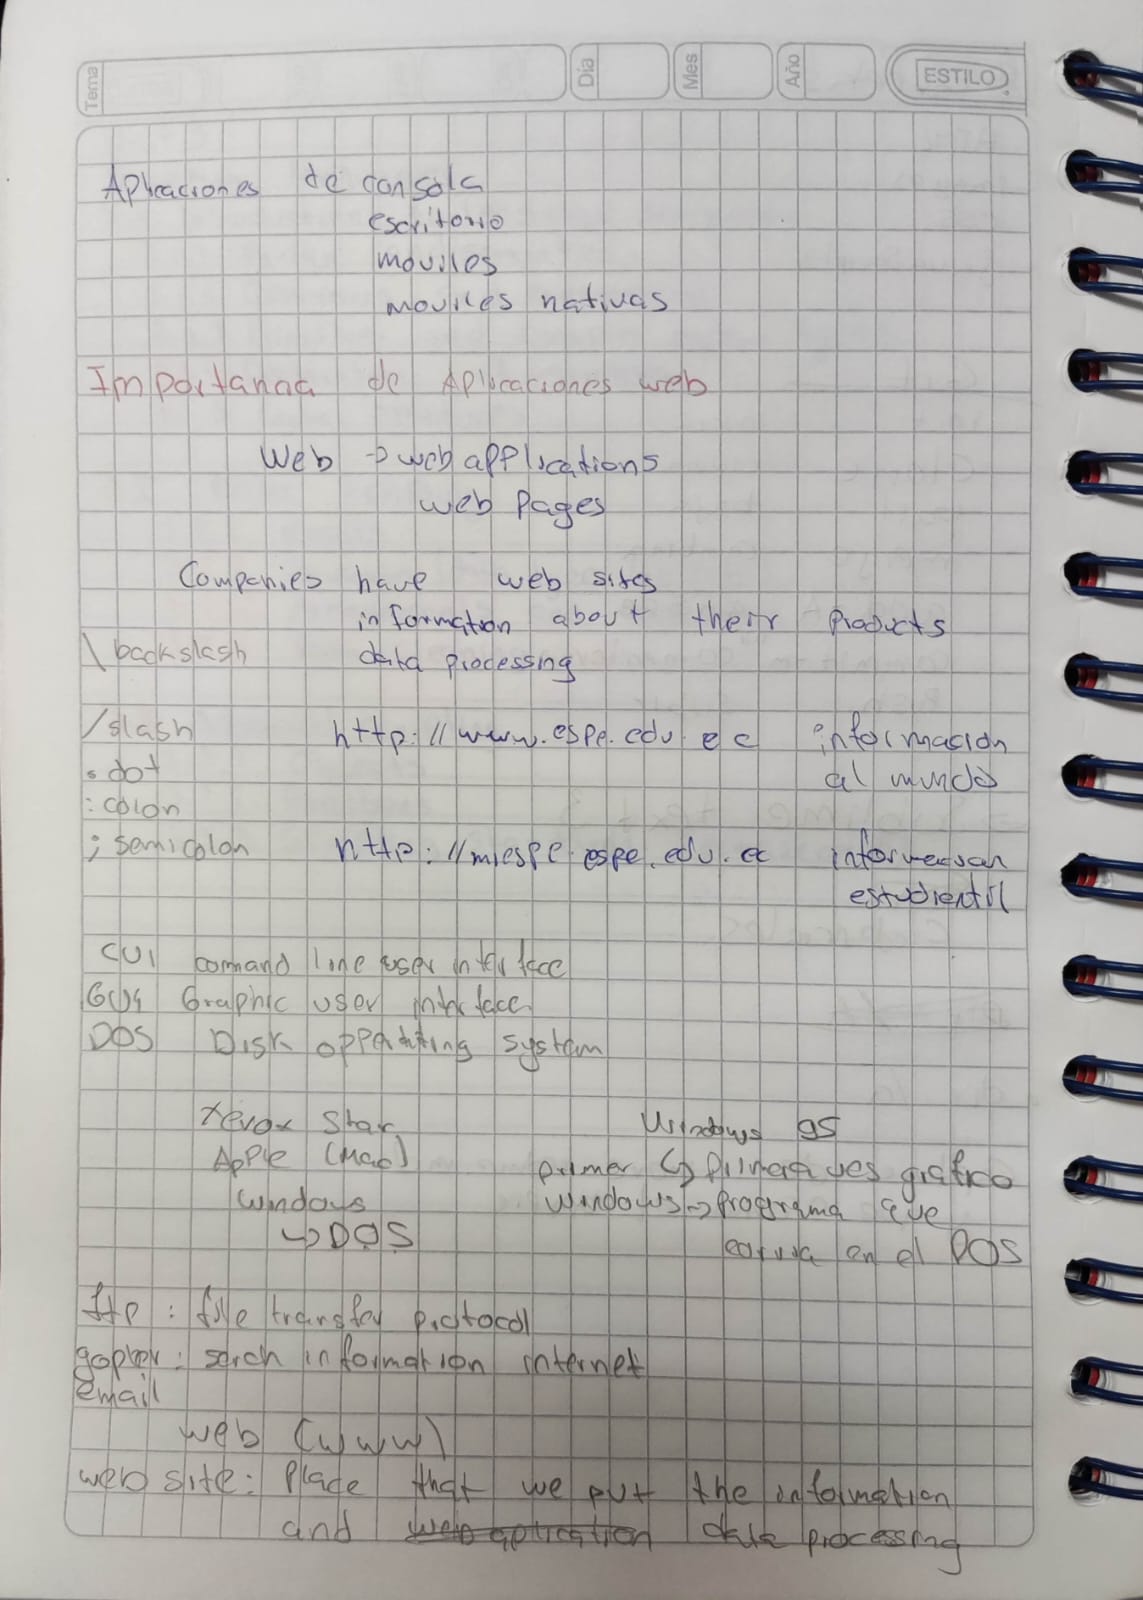 Tema
Día
Mes
Año
ESTILO
Aplicaciones de consola
escritorio
moviles
moviles nativas
Importancia de Aplicaciones web
Web → web applications
web pages
Companies have web sites
information about their products
\ backslash data processing
/slash http://www.espe.edu.ec información
. dot al mundo
: colon
; semicolon http://miespe.espe.edu.ec
estudientil
CUI command line user interface
GUI Graphic user interface
DOS Disk opperating system
Xerox Star Windows 95
Apple (Mac) primer ↳ primera ves grafico
windows windows → programa que
↳ DOS en el DOS
ftp : file transfer protocol
gopher : serch information internet
email
web (www)
web site : Place that we put the information
and web aplication data processing